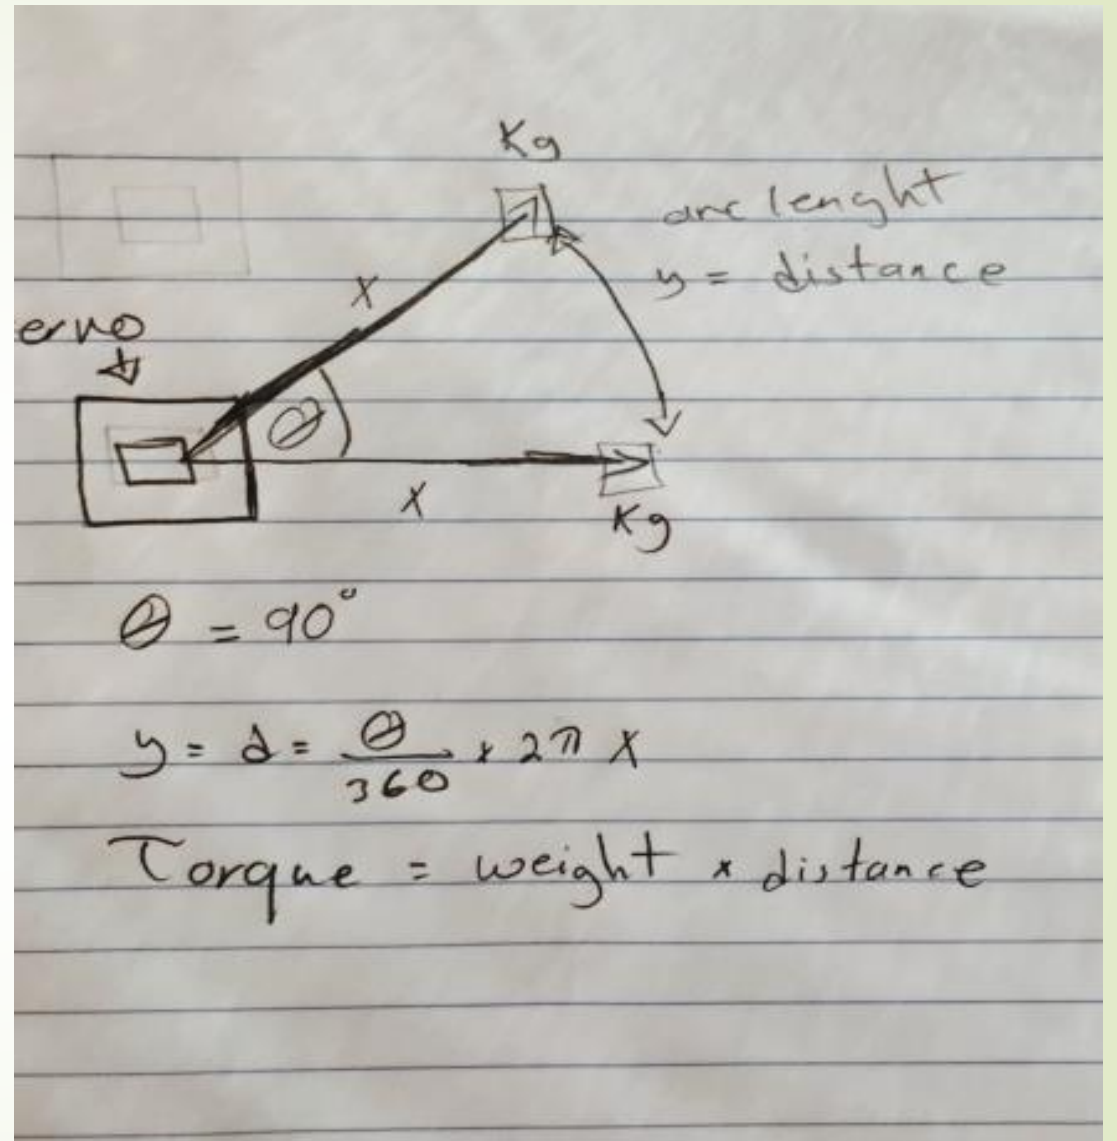 Kg
arc lenght
y = distance
x
ervo
θ
x
Kg
θ = 90°
y = d = θ/360 x 2π x
Torque = weight x distance